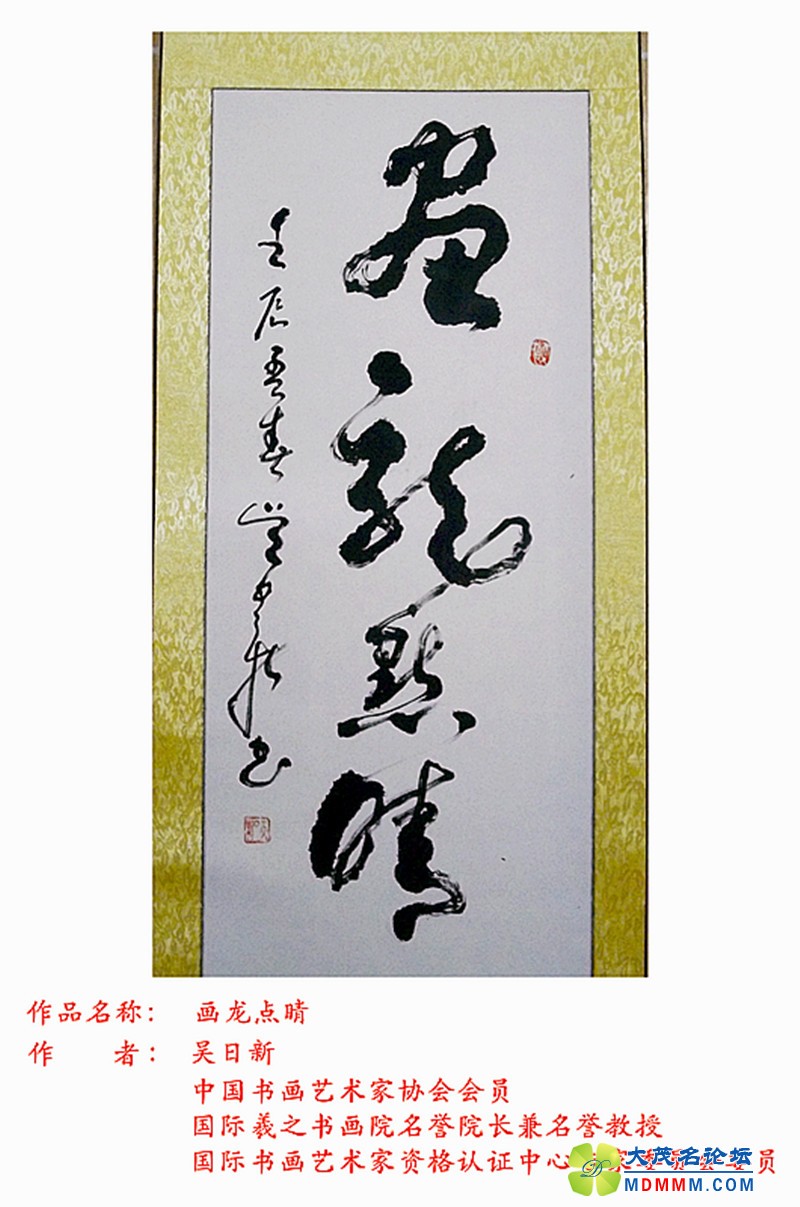 畫龍點睛
壬辰春
书
作品名称： 画龙点晴
作 者： 吴日新
中国书画艺术家协会会员
国际羲之书画院名誉院长兼名誉教授
国际书画艺术家资格认证中心 员
大茂名论坛
MDMMM.COM